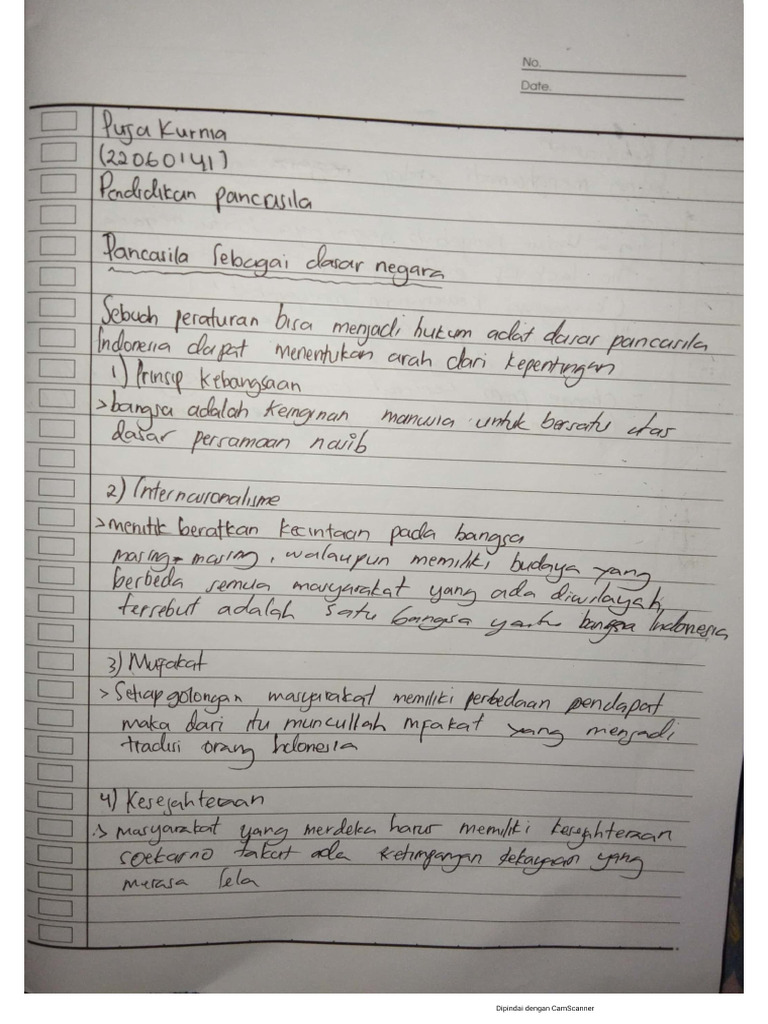 No.
Date.
Puja Kurnia
(22060141)
Pendidikan pancasila
Pancasila Sebagai dasar negara
Sebuah peraturan bisa menjadi hukum adat dasar pancasila
Indonesia dapat menentukan arah dari kepentingan
1) Prinsip Kebangsaan
> bangsa adalah keinginan manusia untuk bersatu atas
dasar persamaan nasib
2) Internasionalisme
> menitik beratkan kecintaan pada bangsa
masing-masing, walaupun memiliki budaya yang
berbeda semua masyarakat yang ada diwilayah
tersebut adalah satu bangsa yaitu bangsa Indonesia
3) Mufakat
> Setiap golongan masyarakat memiliki perbedaan pendapat
maka dari itu muncullah mfakat yang menjadi
tradisi orang Indonesia
4) Kesejahteraan
> masyarakat yang merdeka harus memiliki kesejahteraan
soekarno takut ada ketimpangan yang
merasa
Dipindai dengan CamScanner